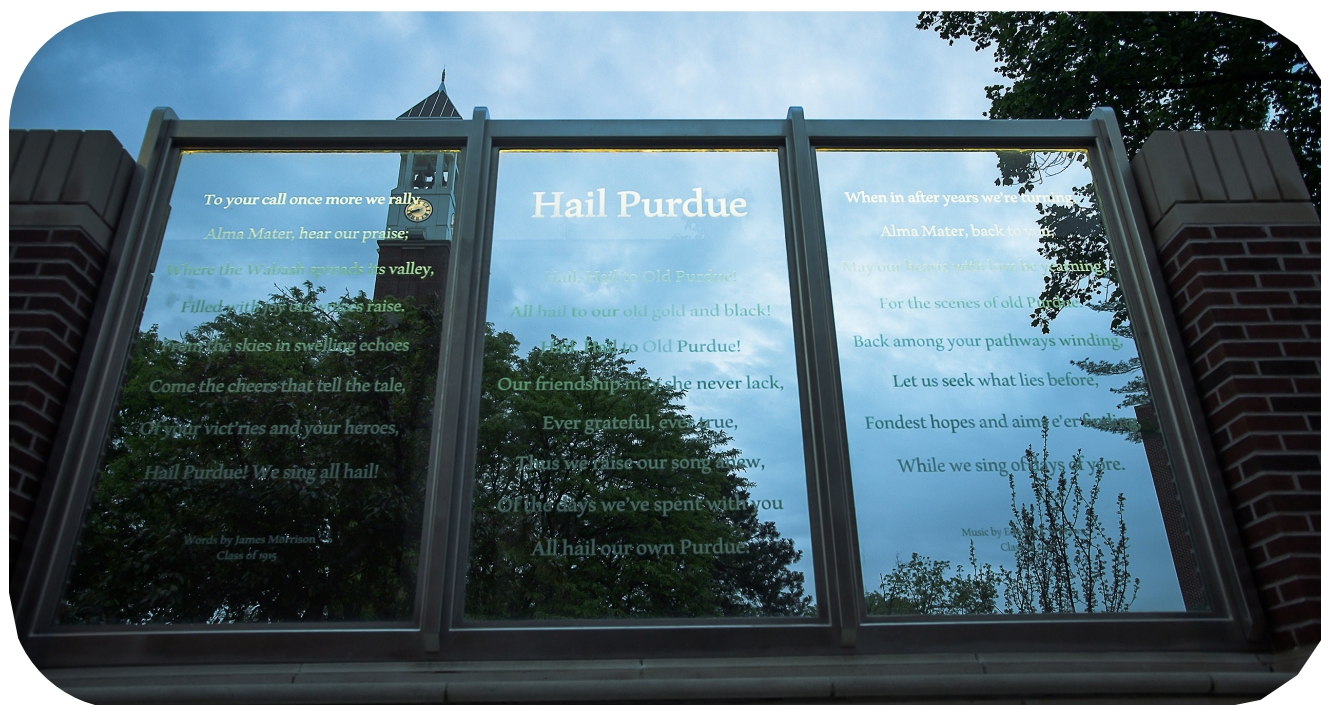 To your call once more we rally,
Alma Mater, hear our praise;
Where the Wabash spreads its valley,
Filled with joy our voices raise.
From the skies in swelling echoes
Come the cheers that tell the tale,
Of your vict'ries and your heroes,
Hail Purdue! We sing all hail!
Words by James Morrison
Class of 1915
Hail Purdue
Hail, Hail to Old Purdue!
All hail to our old gold and black!
Hail, Hail to Old Purdue!
Our friendship may she never lack,
Ever grateful, ever true,
Thus we raise our song anew,
Of the days we've spent with you
All hail our own Purdue.
When in after years we're turning,
Alma Mater, back to you,
May our hearts with love be yearning,
For the scenes of old Purdue.
Back among your pathways winding,
Let us seek what lies before,
Fondest hopes and aims e'er
While we sing of days of yore.
Music by